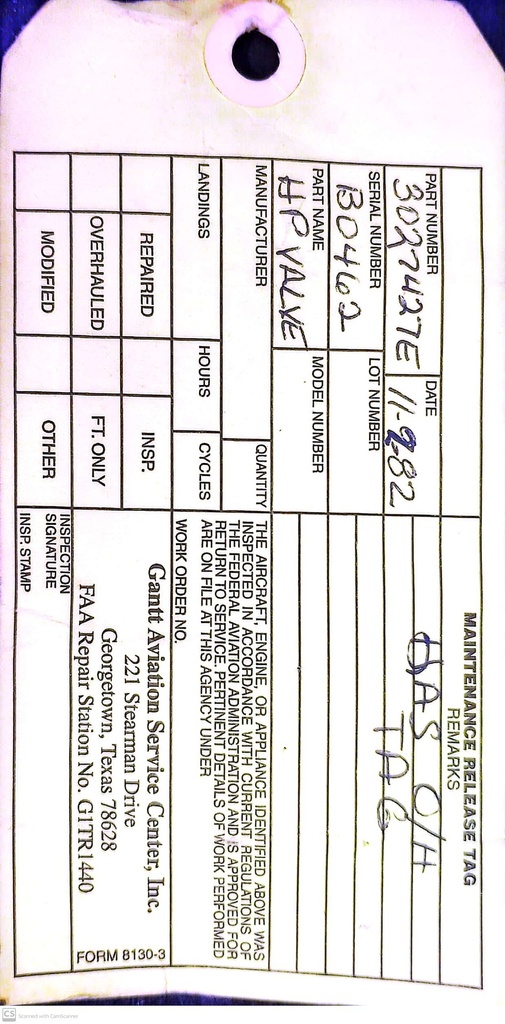 MAINTENANCE RELEASE TAG
PART NUMBER
3027427E
DATE
11-9-82
REMARKS
HAS O/H
TAG
SERIAL NUMBER
B0462
LOT NUMBER
PART NAME
HP VALVE
MODEL NUMBER
MANUFACTURER
QUANTITY
LANDINGS
HOURS
CYCLES
THE AIRCRAFT, ENGINE, OR APPLIANCE IDENTIFIED ABOVE WAS
INSPECTED IN ACCORDANCE WITH CURRENT REGULATIONS OF
THE FEDERAL AVIATION ADMINISTRATION AND IS APPROVED FOR
RETURN TO SERVICE. PERTINENT DETAILS OF WORK PERFORMED
ARE ON FILE AT THIS AGENCY UNDER
WORK ORDER NO.
REPAIRED
INSP.
OVERHAULED
FT. ONLY
MODIFIED
OTHER
Gantt Aviation Service Center, Inc.
221 Stearman Drive
Georgetown, Texas 78628
FAA Repair Station No. G1TR1440
FORM 8130-3
INSPECTION
SIGNATURE
INSP. STAMP
CS Scanned with CamScanner